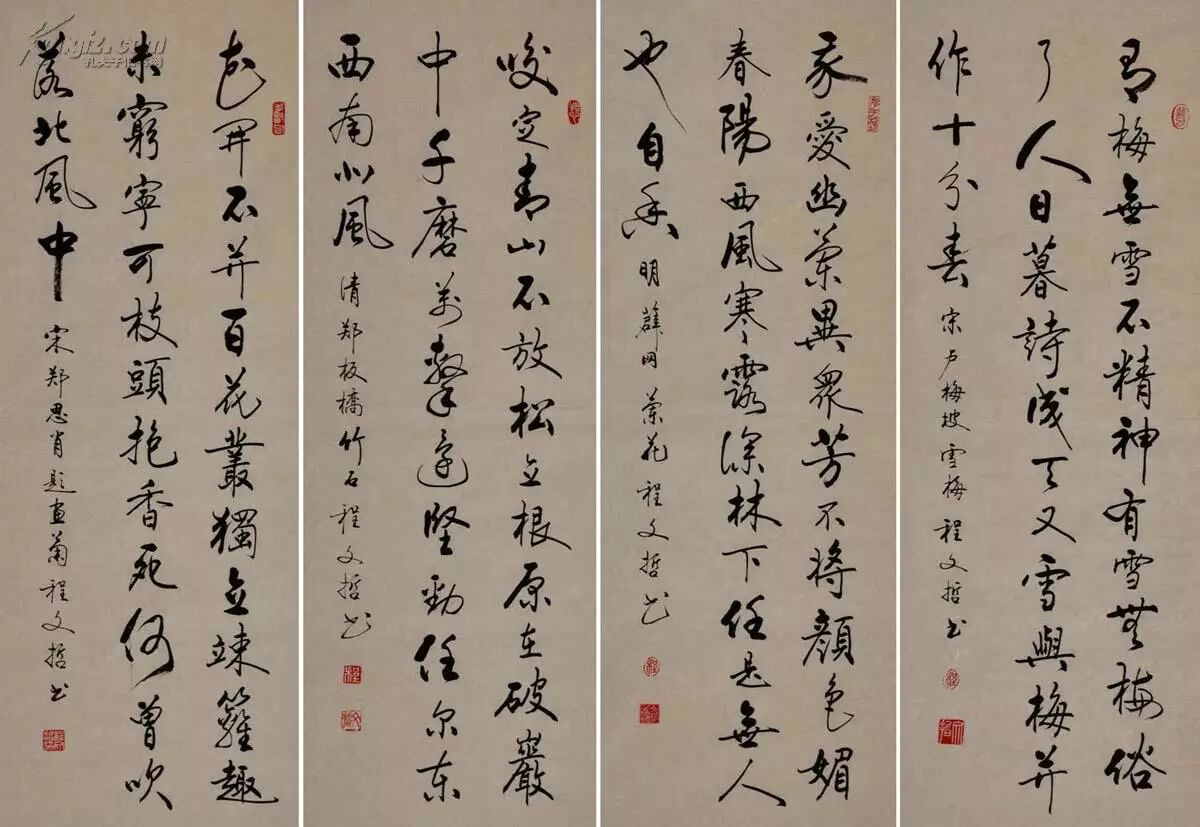 有梅無雪不精神有雪無梅俗
了人日暮詩成天又雪與梅并
作十分春 宋卢梅坡雪梅 程文哲书
我愛幽蘭異眾芳不將顏色媚
春陽西風寒々露深林下任是無人
也自香 明薛网蘭花 程文哲书
咬定青山不放松立根原在破巖
中千磨萬擊還堅勁任尔东
西南北風 清郑板橋竹石 程文哲书
花開不并百花叢獨立疎籬趣
未窮寧可枝頭抱香死何曾吹
落北風中 宋郑思肖題画菊 程文哲书